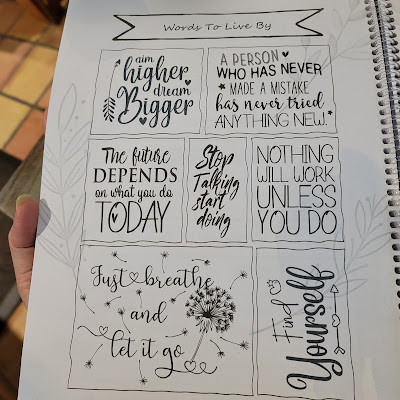 Words To Live By
aim
higher
dream
Bigger
A PERSON
WHO HAS NEVER
MADE A MISTAKE
has never tried
ANYTHING NEW.
The future
DEPENDS
on what you do
TODAY
Stop
Talking
start
doing
NOTHING
WILL WORK
UNLESS
YOU DO
Just breathe
and
let it go
Find
Yourself